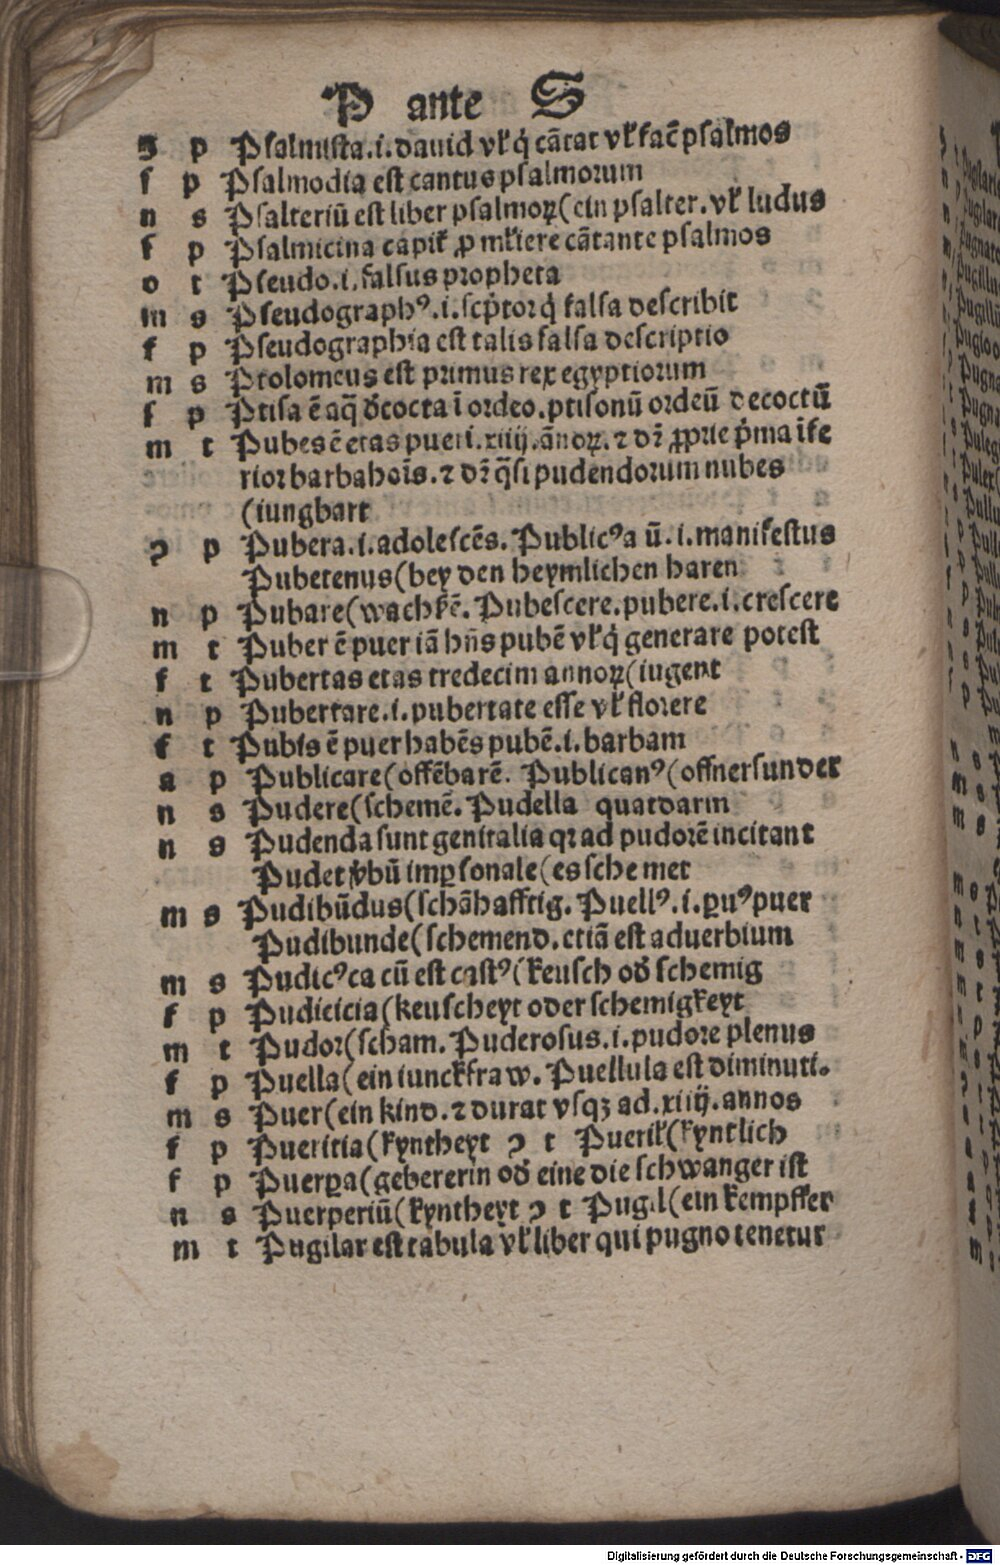 P ante S
ꝯ p Psalmista.i.dauid vl̕ q̇ cãtat vl̕ fac̃ psalmos
f p Psalmodia est cantus psalmorum
n s Psalteriũ est liber psalmoꝝ (ein psalter. vl̕ ludus
f p Psalmicina capit̕ ꝓ ml̕iere cãtante psalmos
o t Pseudo.i.falsus propheta
m s Pseudographꝰ.i.scp̃tor q̇ falsa describit
f p Pseudographia est talis falsa descriptio
m s Ptolomeus est primus rex egyptiorum
f p Ptisa ẽ aq̃ đcocta ĩ ordeo. ptisonũ ordeũ decoctũ
m t Pubes ẽ etas pueri.xiiij.ãnoꝝ. ⁊ dr̃ ꝓprie p̃ma ĩfe
rior barba hoĩs. ⁊ dr̃ q̃si pudendorum nubes
(iungbart
ꝯ p Pubera.i.adolescẽs. Publicꝰa ũ.i.manifestus
Pubetenus (bey den heymlichen haren
n p Pubare (wachſẽ. Pubescere.pubere.i.crescere
m t Puber ẽ puer iã hñs pubẽ vl̕ q̇ generare potest
f t Pubertas etas tredecim annoꝝ (iugent
n p Pubertare.i.pubertate esse vl̕ florere
f t Pubis ẽ puer habẽs pubẽ.i.barbam
a p Publicare (offẽbarẽ. Publicanꝰ (offner sunder
n s Pudere (schemẽ. Pudella quatdarm
n s Pudenda sunt genitalia qꝛ ad pudorẽ incitant
Pudet v̓bũ imꝑsonale (es schemet
m s Pudibũdus (schãhafftig. Puellꝰ.i.ꝑuꝰ puer
Pudibunde (schemend. etiã est aduerbium
m s Pudicꝰca cũ est castꝰ (keusch oď schemig
f p Pudicicia (keuscheyt oder schemigkeyt
m t Pudor (scham. Puderosus.i.pudore plenus
f p Puella (ein iunckfraw. Puellula est diminuti.
m s Puer (ein kind. ⁊ durat vsqꝫ ad.xiiij.annos
f p Pueritia (kyntheyt ꝯ t Pueril̕ (kyntlich
f p Puerꝑa (gebererin oď eine die schwanger ist
n s Puerperiũ (kyntheyt ꝯ t Pugil (ein kempffer
m t Pugilar est tabula vl̕ liber qui pugno tenetur
Digitalisierung gefördert durch die Deutsche Forschungsgemeinschaft - DFG